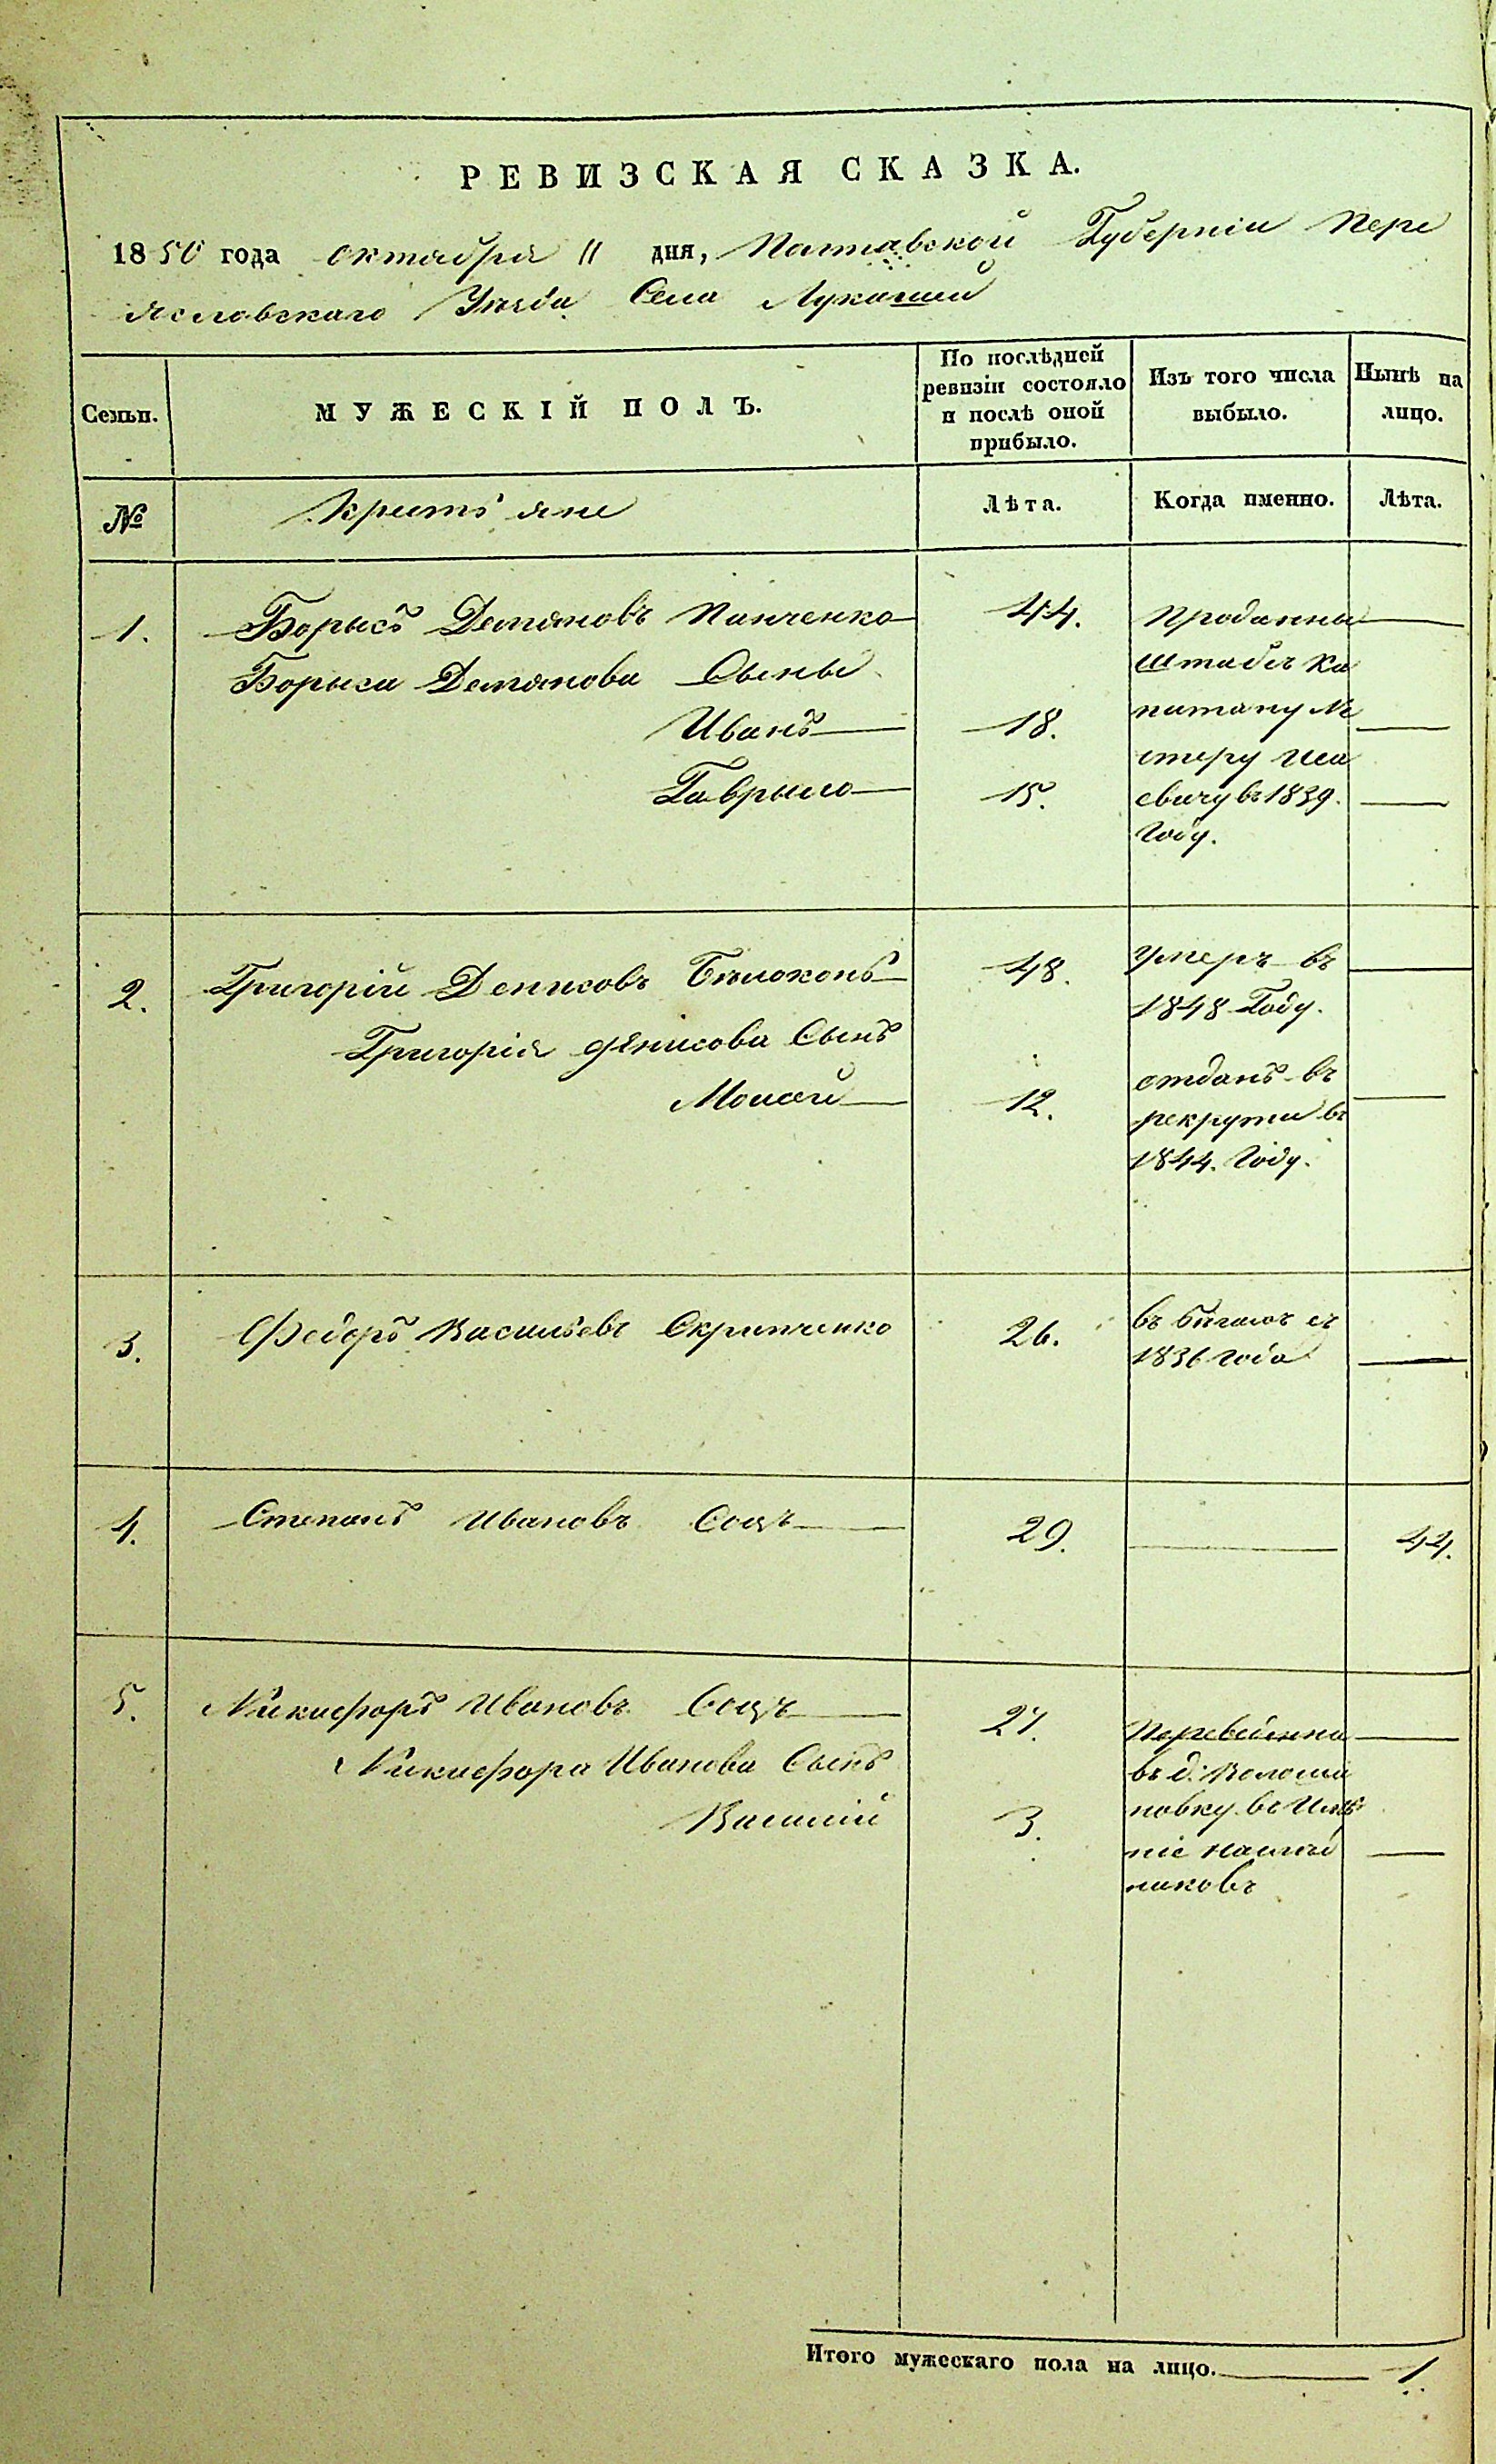 РЕВИЗСКАЯ СКАЗКА.
1850 года октября 11 дня, Полтавской Губерніи Пере
яславскаго Уѣзда Села Лукашей
Семьи.
МУЖЕСКІЙ ПОЛЪ.
По послѣдней ревизіи состояло и послѣ оной прибыло.
Изъ того числа выбыло.
Нынѣ на лицо.
№
Крестьяне
Лѣта.
Когда именно.
Лѣта.
1. Борысъ Демяновъ Панченко 44. Проданны
Борыса Демянова Сыны штабсъ ка
Иванъ 18. питану
Гаврыло 15. евичу въ 1839.
Году.
2. Григорій Денисовъ Бѣлоконь 48. Умеръ въ
1848 Году.
Григорія Денисова Сынъ
Мокей 12. отданъ въ
рекруты въ
1844. Году.
3. Федоръ Васильевъ Скрипченко 26. въ бѣгахъ съ
1836 Года
4. Степанъ Ивановъ Соцъ 29. 44.
5. Никифоръ Ивановъ Соцъ 27. Переведенны
Никифора Иванова Сынъ въ д. Волоши
Василій 3. новку въ Имѣ
ніе наслѣд
никовъ
Итого мужескаго пола на лицо. 1.